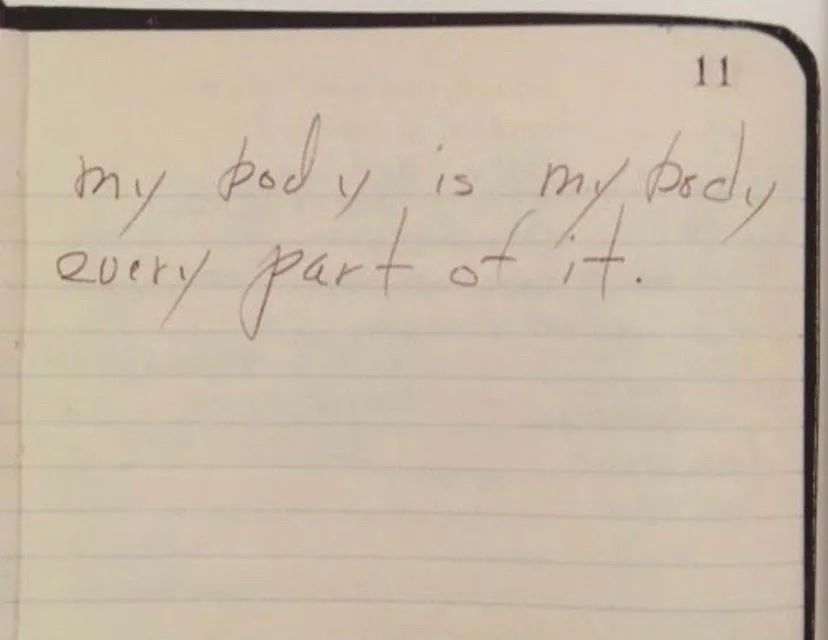 11
my body is my body
every part of it.